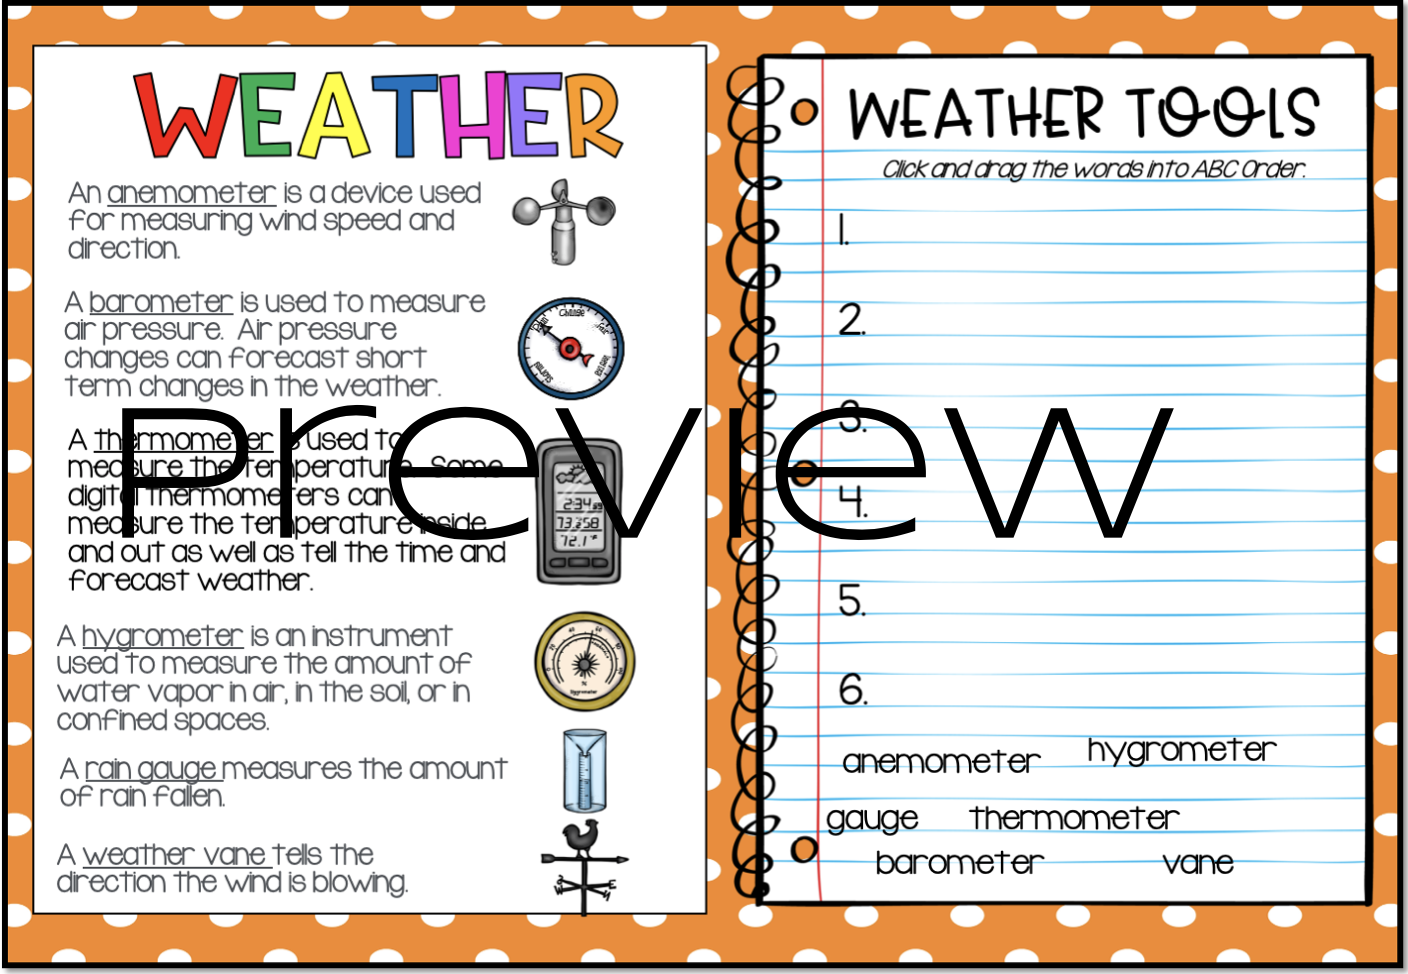 WEATHER
An anemometer is a device used
for measuring wind speed and
direction.
A barometer is used to measure
air pressure. Air pressure
changes can forecast short
term changes in the weather.
A thermometer is used to
measure the temperature. Some
digital thermometers can
measure the temperature inside
and out as well as tell the time and
forecast weather.
A hygrometer is an instrument
used to measure the amount of
water vapor in air, in the soil, or in
confined spaces.
A rain gauge measures the amount
of rain fallen.
A weather vane tells the
direction the wind is blowing.
Rain
Change
Fair
2:34
72.1°F
20
40
60
80
%
hygrometer
W
E
Preview
WEATHER TOOLS
Click and drag the words into ABC Order.
1.
2.
3.
4.
5.
6.
anemometer hygrometer
gauge thermometer
barometer vane